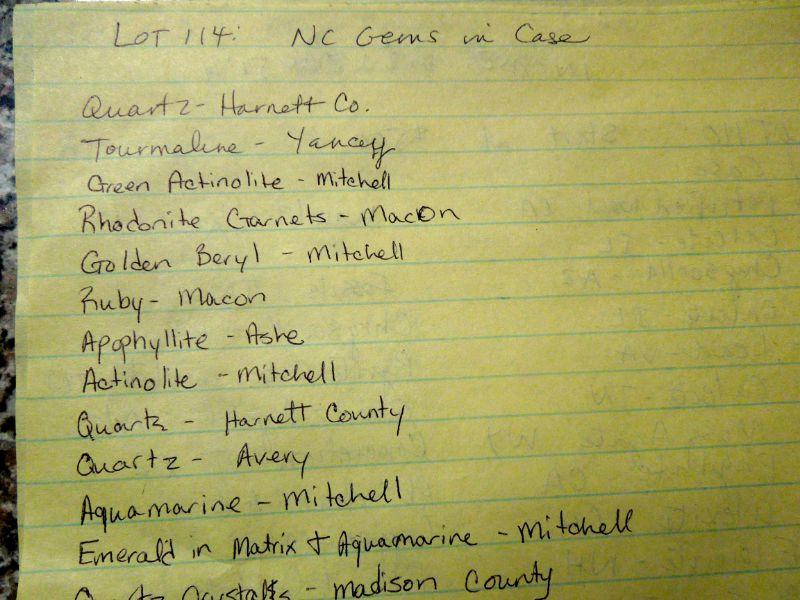 LOT 114: NC Gems in Case
Quartz - Harnett Co.
Tourmaline - Yancey
Green Actinolite - Mitchell
Rhodonite Garnets - Macon
Golden Beryl - Mitchell
Ruby - Macon
Apophyllite - Ashe
Actinolite - Mitchell
Quartz - Harnett County
Quartz - Avery
Aquamarine - Mitchell
Emerald in Matrix + Aquamarine - Mitchell
Quartz Crystals - Madison County